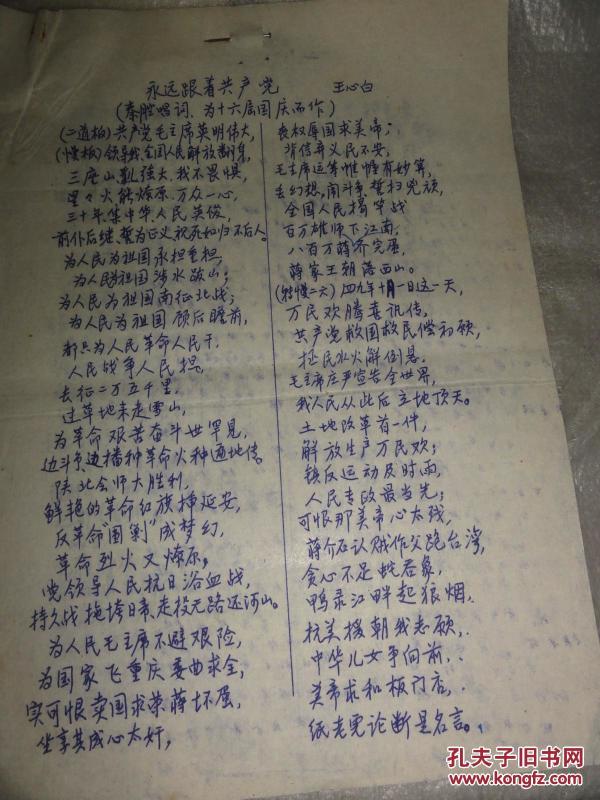 永远跟着共产党　　王心白
(秦腔唱词、为十六届国庆而作)
(二道板)共产党毛主席英明伟大,
(慢板)领导我全国人民解放翻身,
三座山虽强大我不畏惧,
星々火能燎原万众一心,
三十年集中华人民英俊,
前仆后继誓为正义视死如归不后人。
为人民为祖国永担重担,
为人民为祖国涉水跋山;
为人民为祖国南征北战;
为人民为祖国顾后瞻前,
都只为人民革命人民干,
人民战争人民担,
长征二万五千里,
过草地来走雪山,
为革命艰苦奋斗世罕见,
边斗争边播种革命火种遍地传。
陕北会师大胜利,
鲜艳的革命红旗插延安,
反革命“围剿”成梦幻,
革命烈火又燎原。
党领导人民抗日浴血战,
持久战拖垮日本走投无路还河山。
为人民毛主席不避艰险,
为国家飞重庆委曲求全,
实可恨卖国求荣蒋坏蛋,
坐享其成心太奸,
丧权辱国求美帝;
背信弃义民不安,
毛主席运筹帷幄有妙算,
丢幻想,闹斗争,誓扫凶顽,
全国人民得宁战
百万雄师下江南,
八百万蒋介完蛋,
蒋家王朝落西山。
(转慢二六)四九年十月一日这一天,
万民欢腾喜讯传,
共产党救国救民偿初愿,
拯民水火解倒悬。
毛主席庄严宣告全世界,
我人民从此后立地顶天。
土地改革首一件,
解放生产万民欢;
镇反运动及时雨,
人民专政最当先;
可恨那美帝心太残,
蒋介石认贼作父跑台湾,
贪心不足蛇吞象,
鸭录江畔起狼烟.
抗美援朝我志愿,
中华儿女争向前,
美帝求和板门店,
纸老虎论断是名言。
孔夫子旧书网
www.kongfz.com